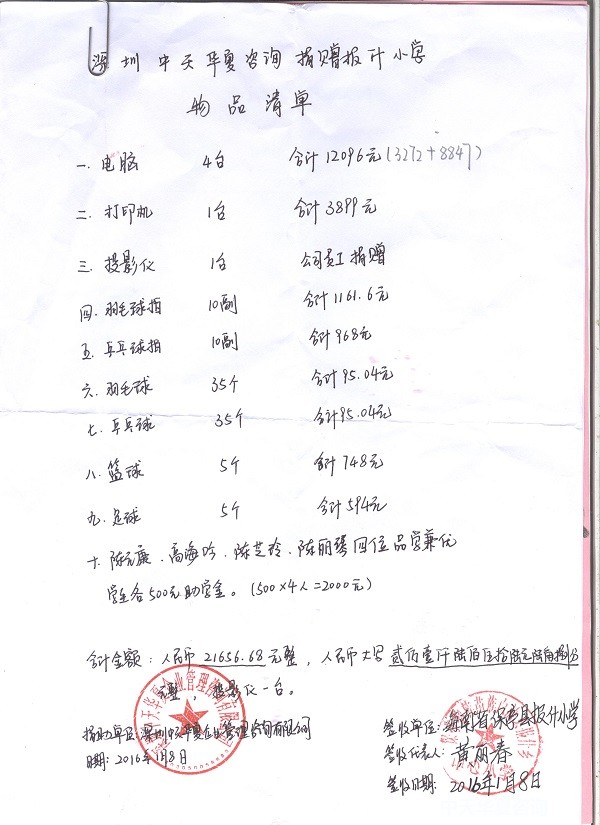 深圳中天华夏咨询捐赠报什小学
物品清单
一.电脑 4台 合计12096元(3272+8847)
二.打印机 1台 合计3899元
三.投影仪 1台 公司员工捐赠
四.羽毛球拍 10副 合计1161.6元
五.乒乓球拍 10副 合计968元
六.羽毛球 35个 合计95.04元
七.乒乓球 35个 合计95.04元
八.篮球 5个 合计748元
九.足球 5个 合计594元
十.陈元庭、高海吟、陈芝玲、陈丽琴四位品学兼优
学生各500元助学金。(500×4人=2000元)
合计金额:人民币21656.68元整,人民币大写贰仟壹仟陆佰伍拾陆元陆角捌分
元整,投影仪一台。
捐助单位:深圳中天华夏企业管理咨询有限公司
日期:2016年1月8日
签收单位:海南省保亭县报什小学
签收代表人:黄丽春
签收日期:2016年1月8日